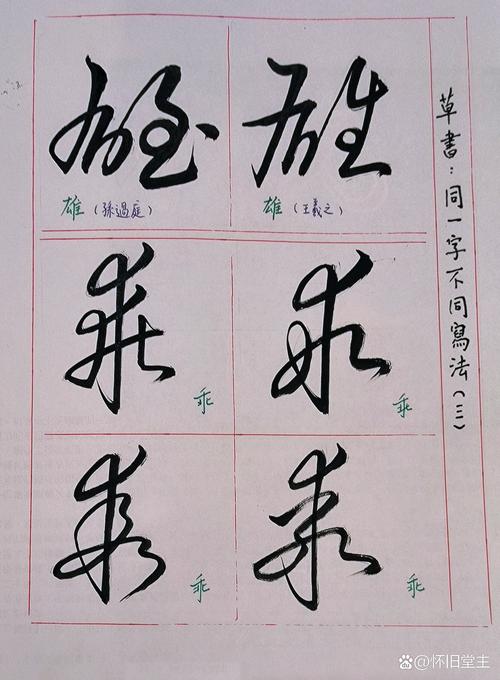 草書：同一字不同寫法（三）
雄 雄
雄（孫過庭） 雄（王羲之）
乖 乖
乖 乖
乖 乖
乖 乖
@怀旧堂主